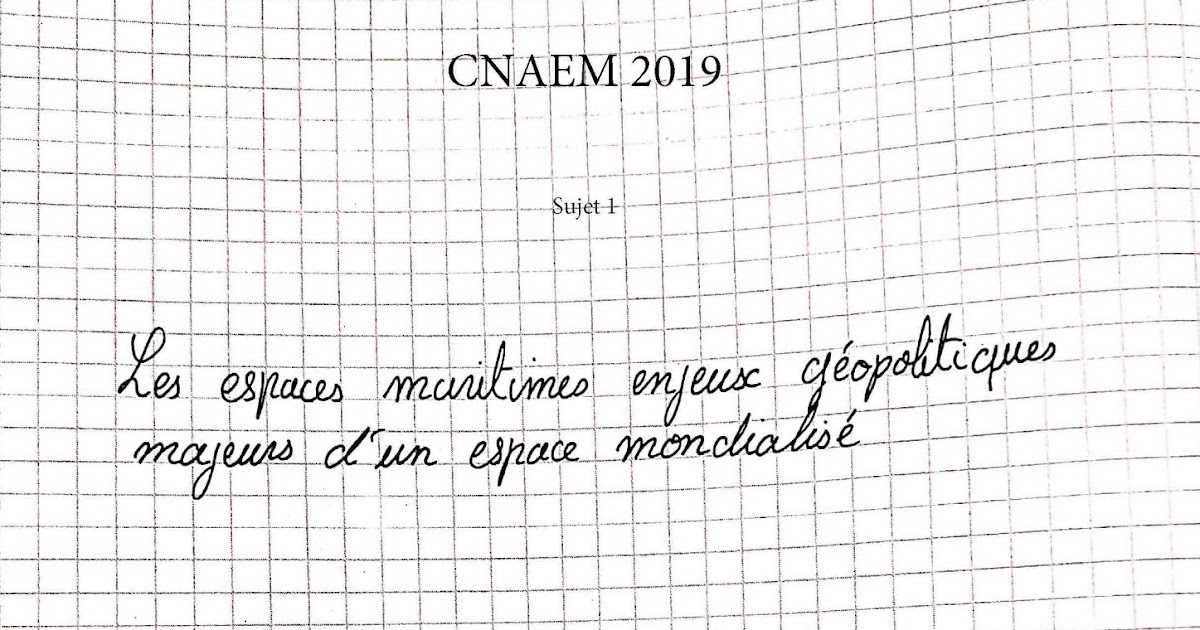 CNAEM 2019
Sujet 1
Les espaces maritimes enjeux géopolitiques
majeurs d'un espace mondialisé